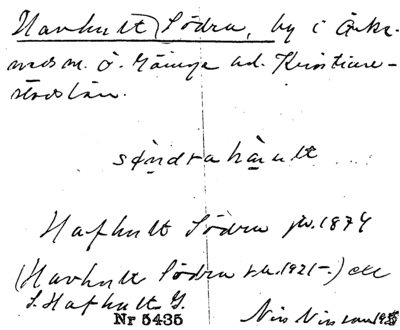 Havhult Södra, by i Örke-
neds sn. Ö. Göinge hd. Kristian-
stads län.
söndra hault
Hafhult Södra jb. 1874
(Havhult Södra 1921-.) etc
S. Hafhult G.
Nr 5435
Nils Nilsson